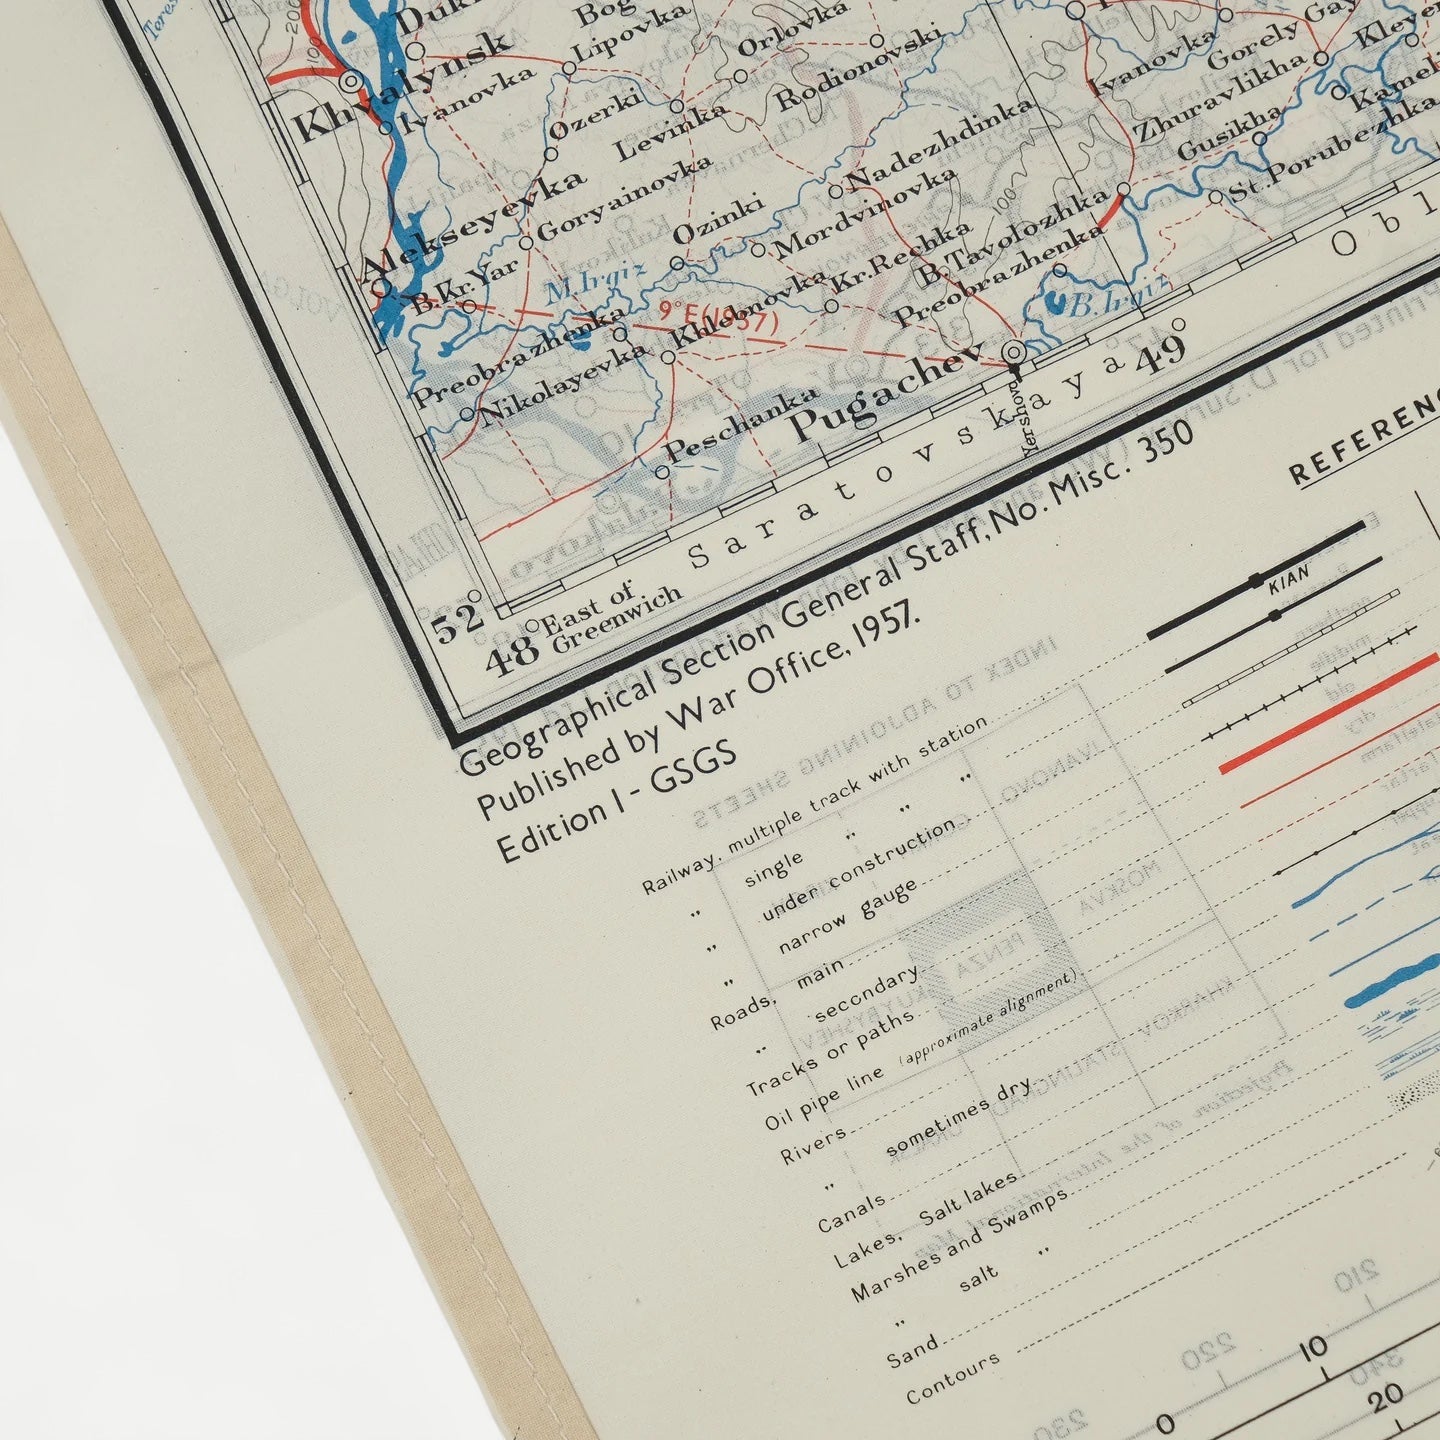 Khvalynsk
Ivanovka
Lipovka
Orlovka
Rodionovski
Ivanovka
Gorely Gay
Zhuravlikha
Gusikha
St.Porubezhka
Ozerki
Levinka
Nadezhdinka
Alekseyevka
Goryainovka
Ozinki
Mordvinovka
B.Kr.Yar
M.Irgiz
Kr.Rechka
B.Tavolozhka
Preobrazhenka
B.Irgiz
9°E(1957)
Khlebnovka
Preobrazhenka
Nikolayevka
Pugachev
Peschanka
Yershov
200
100
100
49°
Saratovskaya Obl
52°
48° East of
Greenwich
Geographical Section General Staff, No. Misc. 350
Published by War Office, 1957.
Edition 1 - GSGS
KIAN
Railway, multiple track with station
" single " "
" under construction
" narrow gauge
Roads, main
" secondary
Tracks or paths
Oil pipe line (approximate alignment)
Rivers
" sometimes dry
Canals
Lakes, Salt lakes
Marshes and Swamps
" salt "
Sand
Contours
INDEX TO ADJOINING SHEETS
IVANOVO
MOSKVA
PENZA
KUYBYSHEV
KHARKOV
STALINGRAD
Projection of the International Map
210
220
230
340
10
0
20